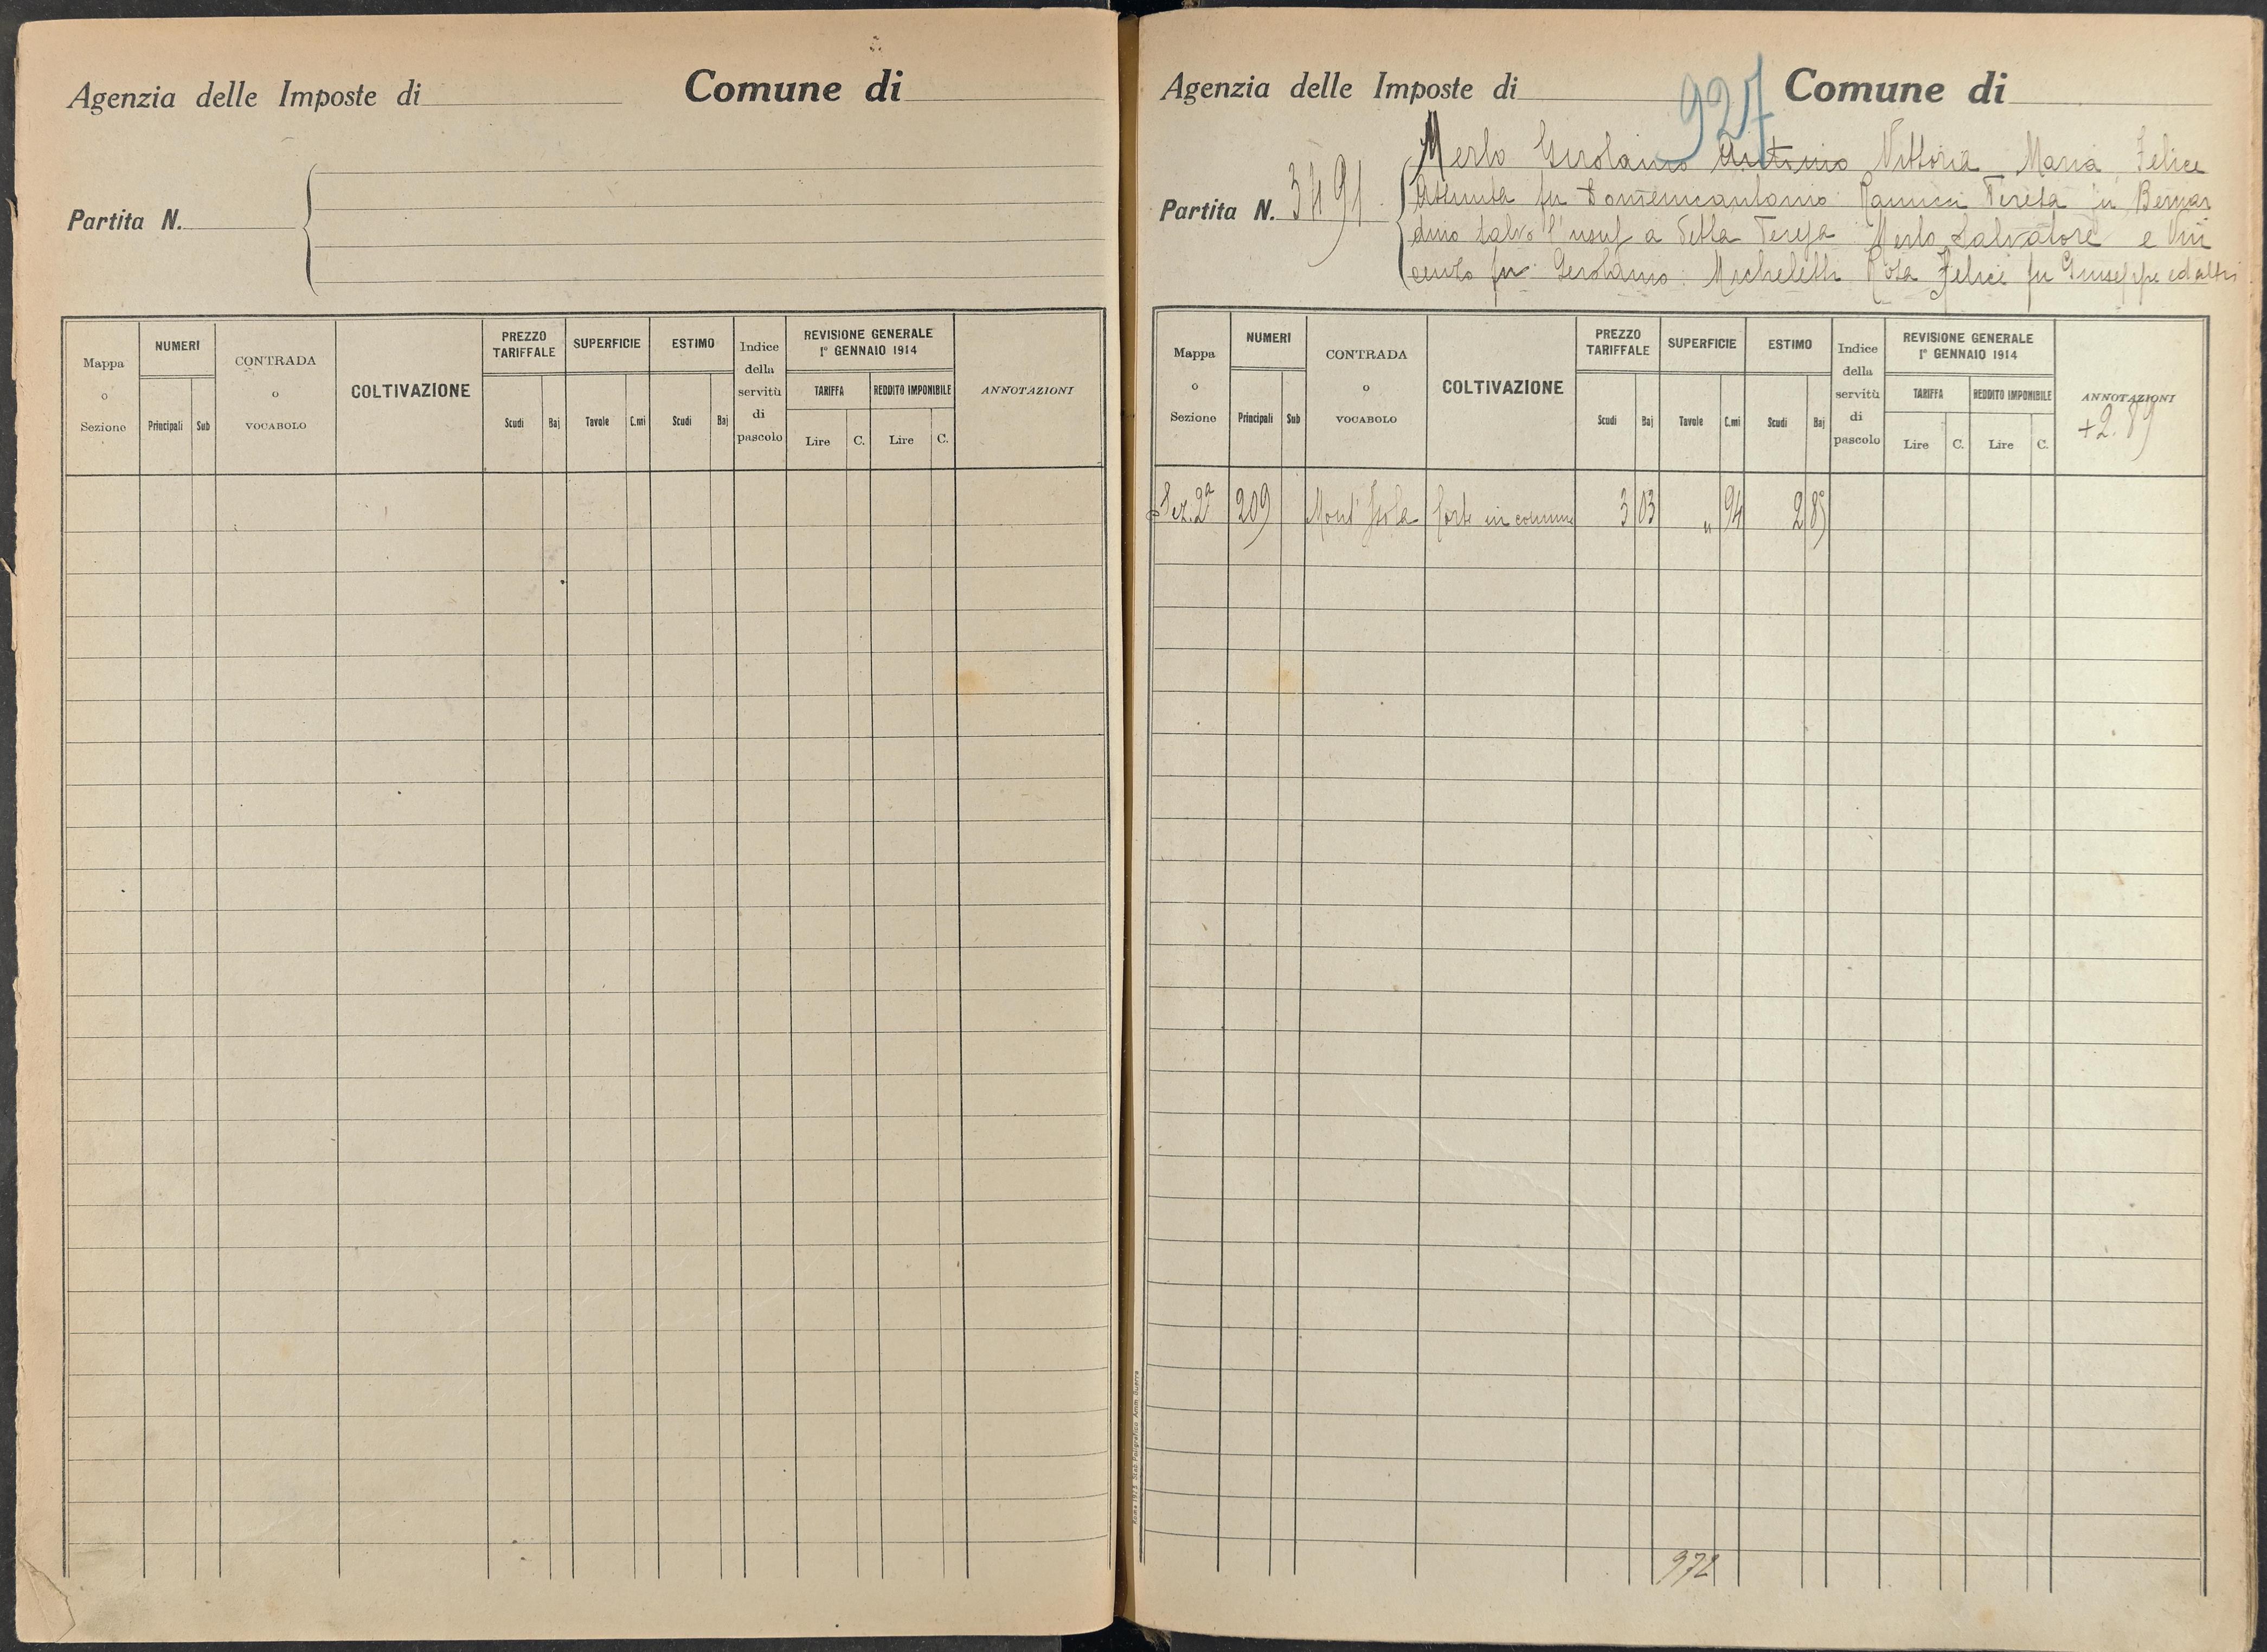 Agenzia delle Imposte di Comune di
Partita N.
Mappa o Sezione NUMERI Principali Sub CONTRADA o VOCABOLO COLTIVAZIONE PREZZO TARIFFALE Scudi Baj SUPERFICIE Tavole C.mi ESTIMO Scudi Baj Indice della servitù di pascolo REVISIONE GENERALE 1° GENNAIO 1914 TARIFFA Lire C. REDDITO IMPONIBILE Lire C. ANNOTAZIONI
927
Agenzia delle Imposte di Comune di
Merlo Girolamo Antonio Vittoria Maria Felice
Partita N. 3491 Assunta fu Domenicantonio Teresa fu Bernar
dino salvo l'usuf a Detta Teresa Merlo Salvatore e Vin
cenzo fu Gerolamo Micheletti Rosa Felice fu Giuseppe ed altri
Mappa o Sezione NUMERI Principali Sub CONTRADA o VOCABOLO COLTIVAZIONE PREZZO TARIFFALE Scudi Baj SUPERFICIE Tavole C.mi ESTIMO Scudi Baj Indice della servitù di pascolo REVISIONE GENERALE 1° GENNAIO 1914 TARIFFA Lire C. REDDITO IMPONIBILE Lire C. ANNOTAZIONI
+2.89
Sez. 2ª 209 Mont' Isola Corte in comune 3 03 „ 94 2 85
972